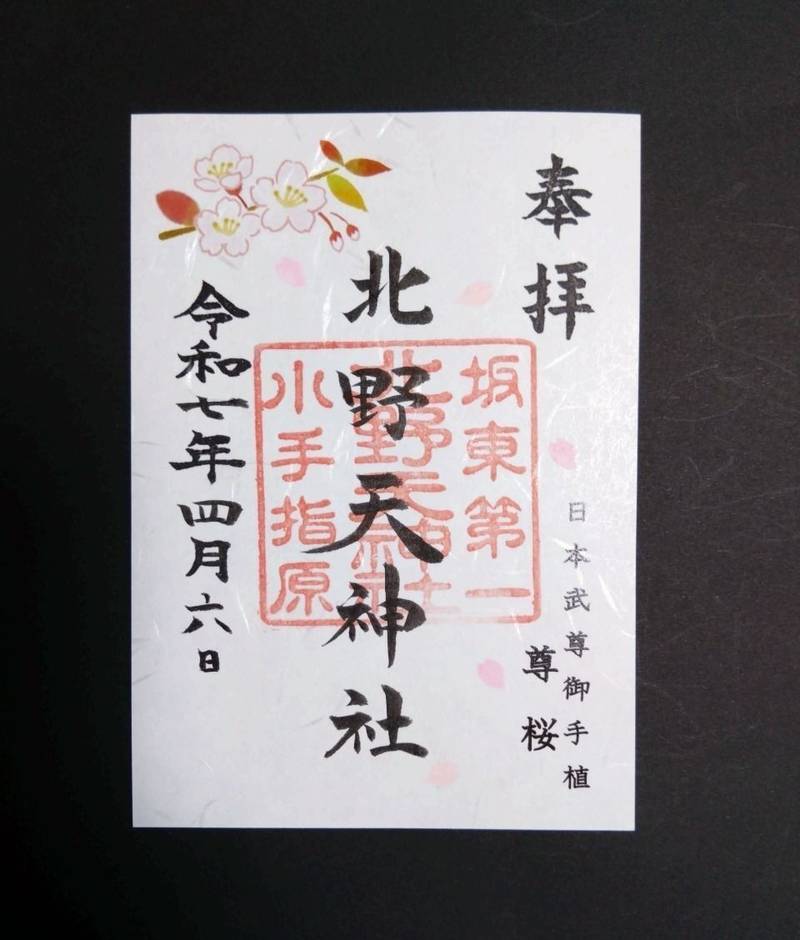 奉拝
日本武尊御手植
尊桜
北野天神社
坂東第一
北野天神社
小手指原
令和七年四月六日